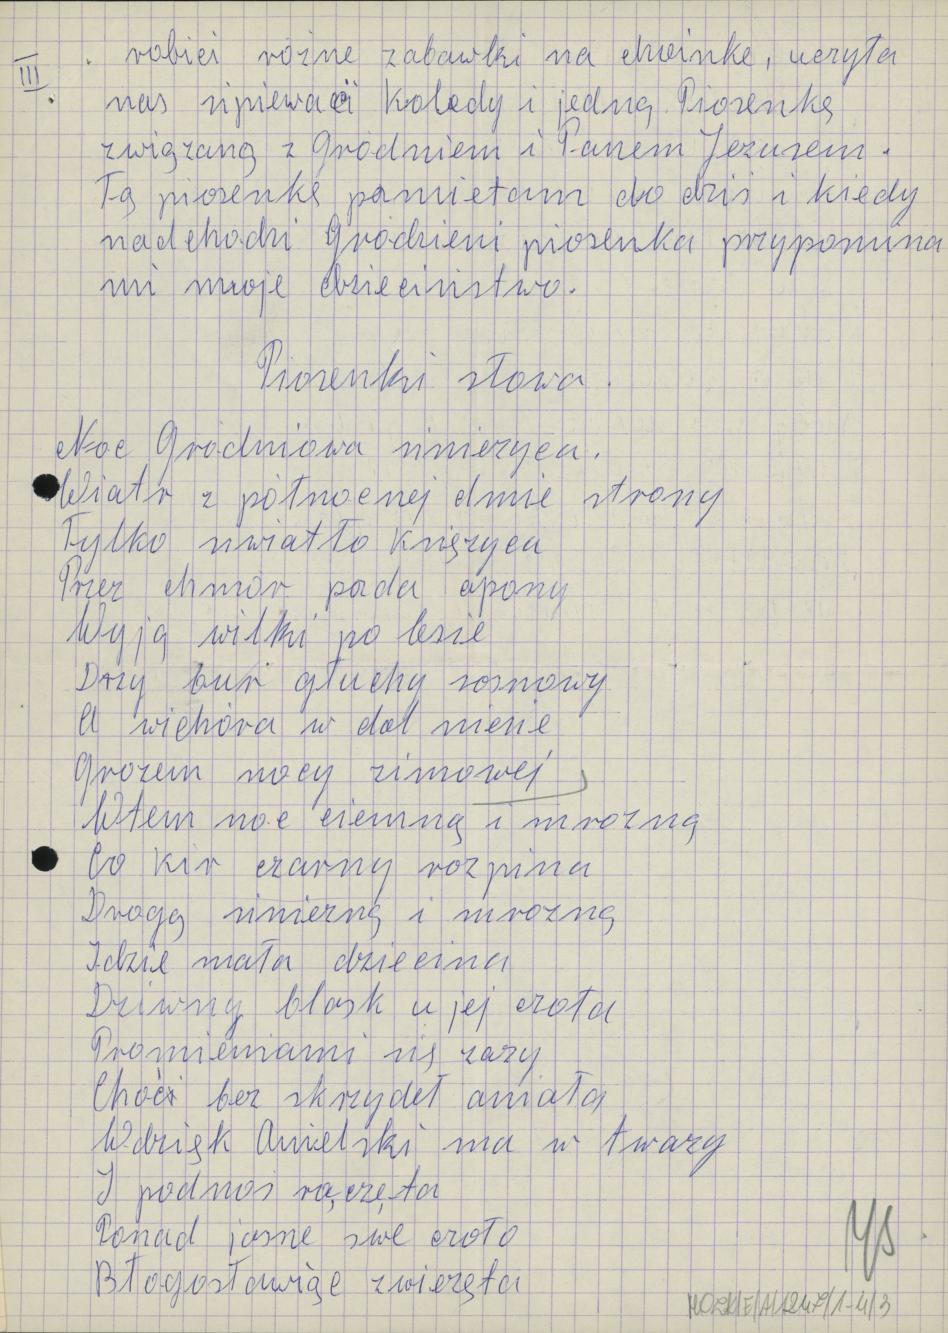 III
robići różne zabawki na choinke, uczyła
nas śpiewaći Kolędy i jedną Piosenkę
związaną z Gródniem i Panem Jezusem.
Tą piosenkę pamietam do dziś i kiedy
nadchodzi Gródzieni piosenka przypomina
mi moje dzieciństwo.
Piosenki słowa.
Noc Gródniowa śnieżyca.
Wiatr z północnej dmie strony
Tylko światło Księżyca
Przez chmór pada opony
Wyją wilki po lesie
Drzy bur głuchy sosnowy
A wichóra w dal niesie
Grozem nocy zimowej
Wtem noc ciemną i mrożną
Co kir czarny rozpina
Drogą śnieżną i mrożną
Idzie mała dziecina
Dziwny blask u jej czoła
Promieniami się żarzy
Choći bez skrzydeł anioła
Wdzięk Anielski ma w twarzy
I podnoś rączęta
Ponad jasne swe czoło
Błogosławiąc zwierzęta